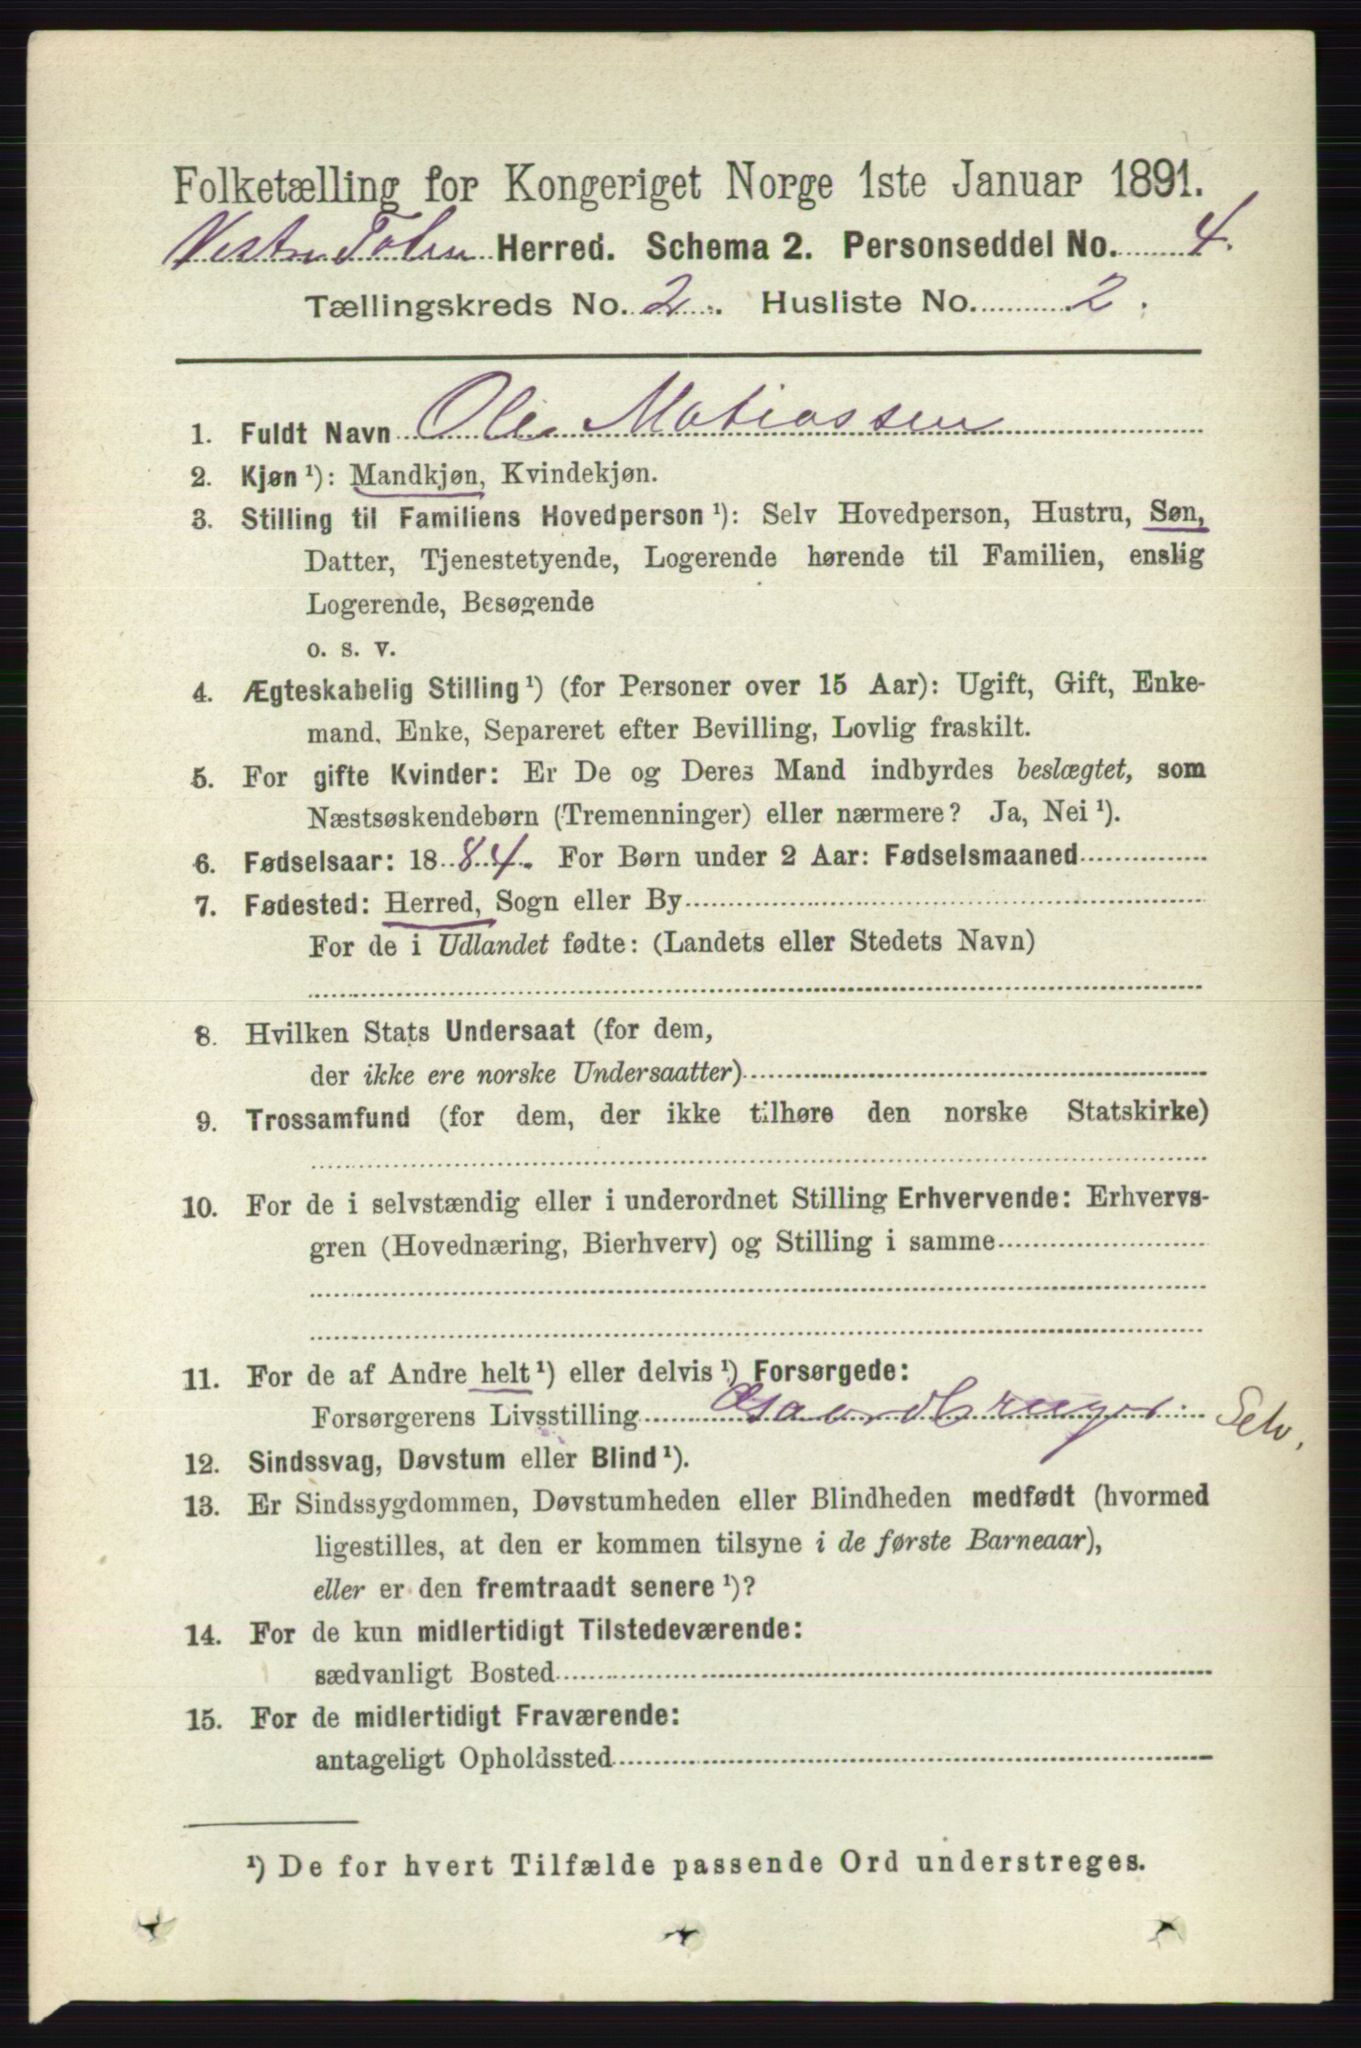 Folketælling for Kongeriget Norge 1ste Januar 1891.
Vestre Toten Herred. Schema 2. Personseddel No. 4.
Tællingskreds No. 2. Husliste No. 2.
1. Fuldt Navn Ole Matiassen
2. Kjøn ¹): Mandkjøn, Kvindekjøn.
3. Stilling til Familiens Hovedperson ¹): Selv Hovedperson, Hustru, Søn,
Datter, Tjenestetyende, Logerende hørende til Familien, enslig
Logerende, Besøgende
o. s. v.
4. Ægteskabelig Stilling ¹) (for Personer over 15 Aar): Ugift, Gift, Enke-
mand, Enke, Separeret efter Bevilling, Lovlig fraskilt.
5. For gifte Kvinder: Er De og Deres Mand indbyrdes beslægtet, som
Næstsøskendebørn (Tremenninger) eller nærmere? Ja, Nei ¹).
6. Fødselsaar: 1884. For Børn under 2 Aar: Fødselsmaaned
7. Fødested: Herred, Sogn eller By
For de i Udlandet fødte: (Landets eller Stedets Navn)
8. Hvilken Stats Undersaat (for dem,
der ikke ere norske Undersaatter)
9. Trossamfund (for dem, der ikke tilhøre den norske Statskirke)
10. For de i selvstændig eller i underordnet Stilling Erhvervende: Erhvervs-
gren (Hovednæring, Bierhverv) og Stilling i samme
11. For de af Andre helt ¹) eller delvis ¹) Forsørgede:
Forsørgerens Livsstilling Gaardbruger. Selv.
12. Sindssvag, Døvstum eller Blind ¹).
13. Er Sindssygdommen, Døvstumheden eller Blindheden medfødt (hvormed
ligestilles, at den er kommen tilsyne i de første Barneaar),
eller er den fremtraadt senere ¹)?
14. For de kun midlertidigt Tilstedeværende:
sædvanligt Bosted
15. For de midlertidigt Fraværende:
antageligt Opholdssted
¹) De for hvert Tilfælde passende Ord understreges.